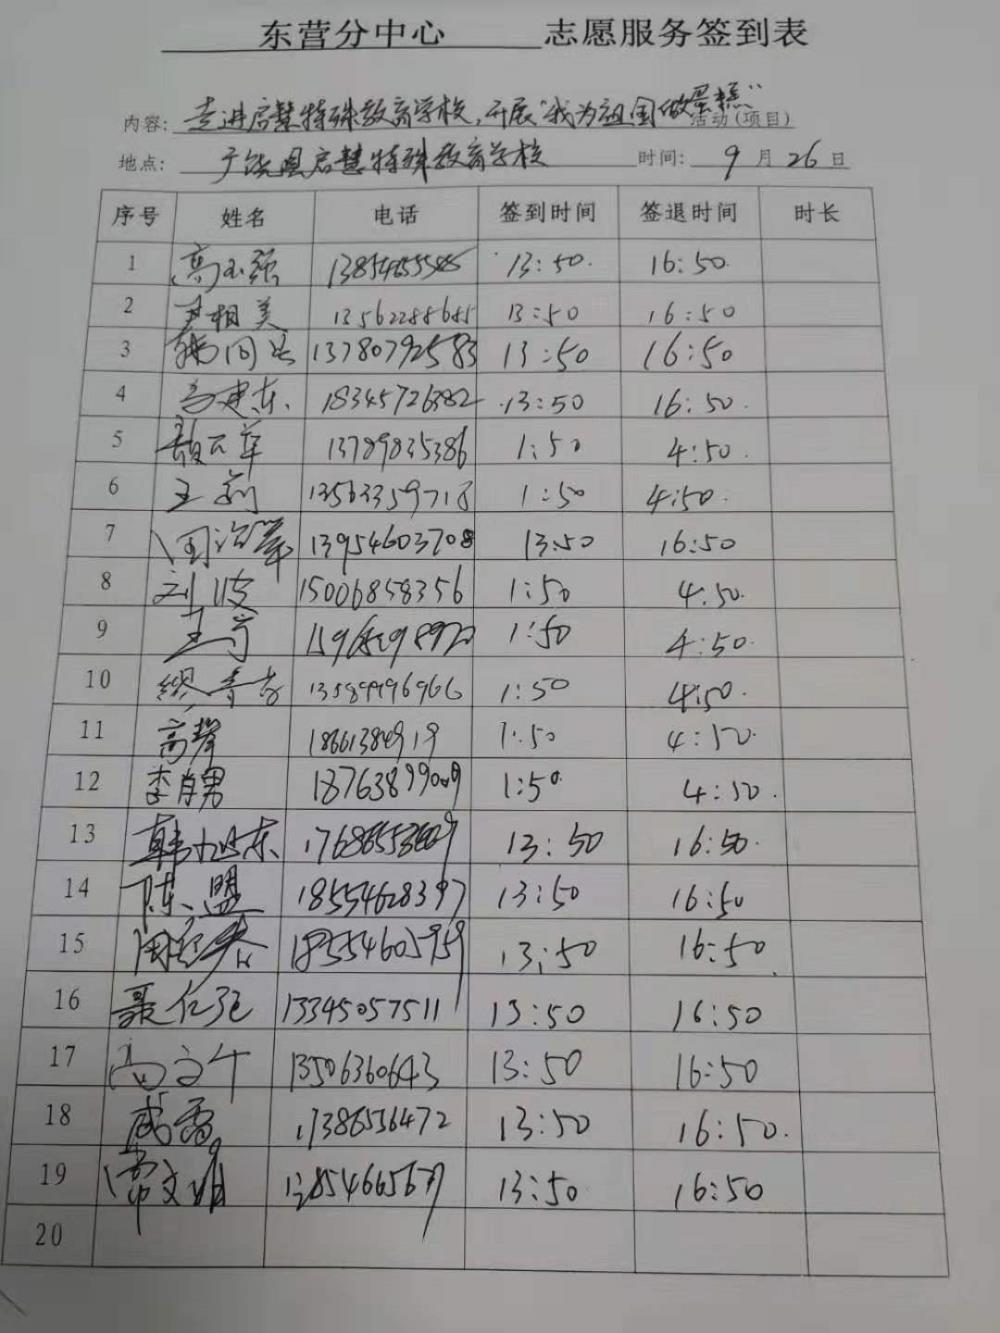 东营分中心 志愿服务签到表
内容: 走进启慧特殊教育学校,开展"我为祖国做蛋糕" 活动(项目)
地点: 广饶县启慧特殊教育学校 时间: 9月26日
序号 姓名 电话 签到时间 签退时间 时长
1 高玉强 13:50 16:50
2 尹相美 13562288685 13:50 16:50
3 13780792583 13:50 16:50
4 高建东 18345726382 13:50 16:50
5 13789835386 1:50 4:50
6 王莉 13563359718 1:50 4:50
7 13954603708 13:50 16:50
8 刘波 15006858356 1:50 4:50
9 王宁 1:50 4:50
10 缪青吉 13589996966 1:50 4:50
11 高攀 1:50 4:50
12 李肖男 18763899009 1:50 4:50
13 韩旭东 13:50 16:50
14 陈盟 18554628397 13:50 16:50
15 18554605959 13:50 16:50
16 聂仁孔 13345057511 13:50 16:50
17 高立午 13506360643 13:50 16:50
18 成雷 13:50 16:50
19 常文娟 13:50 16:50
20